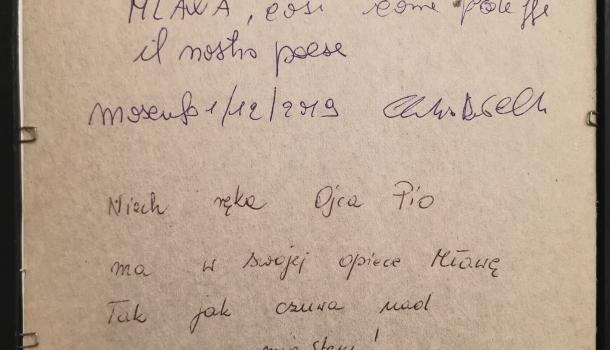 MLAWA, così come protegge
il nostro paese
1/12/2019
Niech ręka Ojca Pio
ma w swojej opiece Mławę
Tak jak czuwa nad